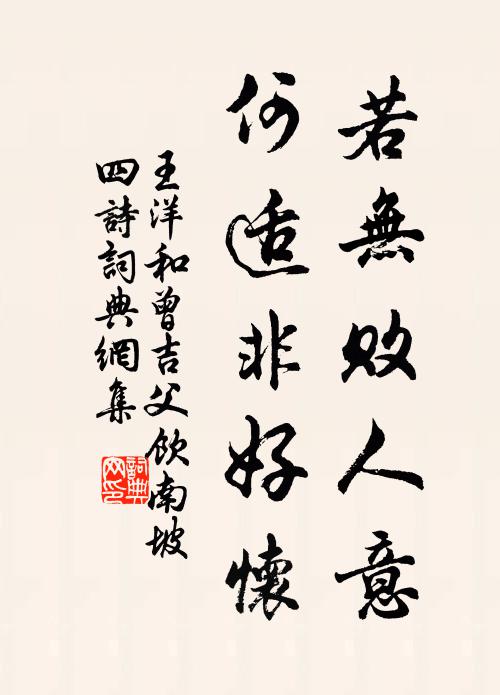 若無敗人意
何适非好懷
王洋和曾吉父飲南坡
四詩詞典網集
詞典
网印